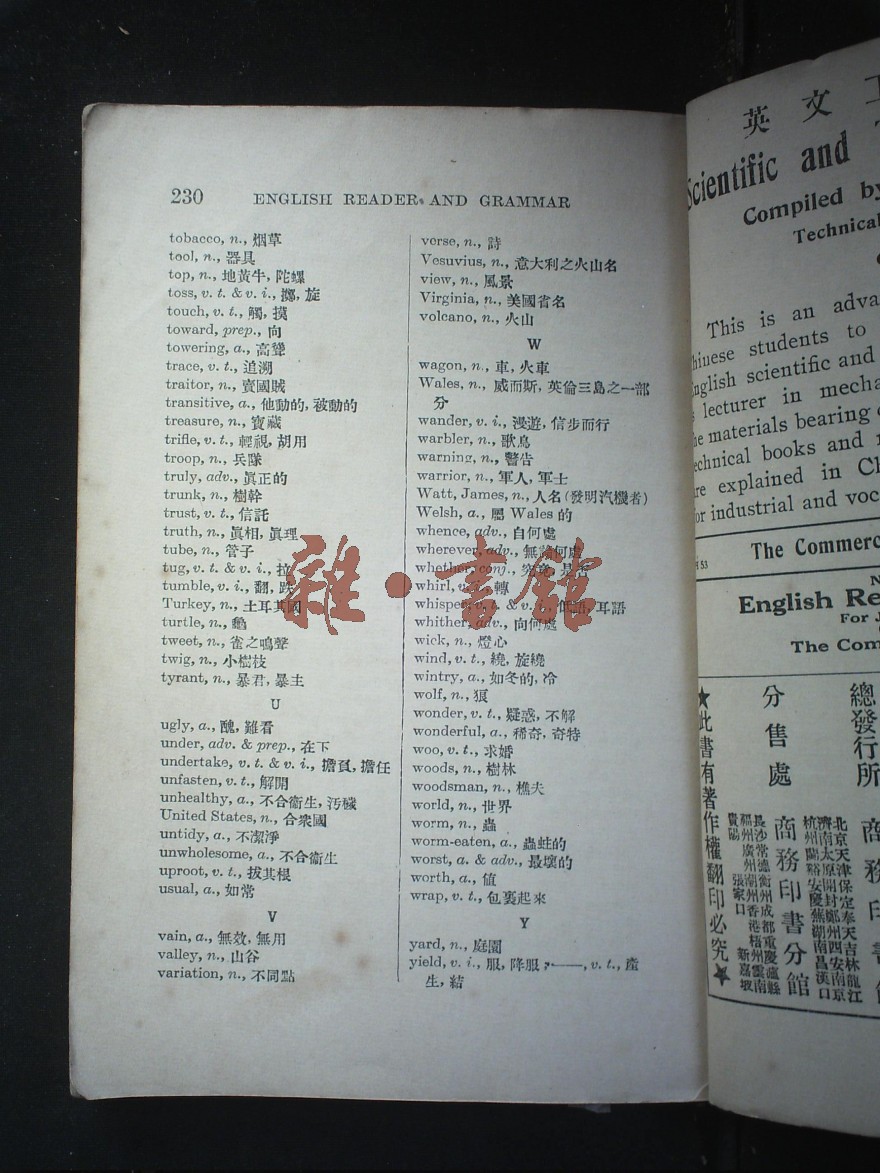 230 ENGLISH READER AND GRAMMAR
tobacco, n., 烟草
tool, n., 器具
top, n., 地黃牛, 陀螺
toss, v. t. & v. i., 擲, 旋
touch, v. t., 觸, 摸
toward, prep., 向
towering, a., 高聳
trace, v. t., 追溯
traitor, n., 賣國賊
transitive, a., 他動的, 被動的
treasure, n., 寶藏
trifle, v. t., 輕視, 胡用
troop, n., 兵隊
truly, adv., 眞正的
trunk, n., 樹幹
trust, v. t., 信託
truth, n., 眞相, 眞理
tube, n., 管子
tug, v. t. & v. i., 拉
tumble, v. i., 翻, 跌
Turkey, n., 土耳其國
turtle, n., 龜
tweet, n., 雀之鳴聲
twig, n., 小樹枝
tyrant, n., 暴君, 暴主
U
ugly, a., 醜, 難看
under, adv. & prep., 在下
undertake, v. t. & v. i., 擔負, 擔任
unfasten, v. t., 解開
unhealthy, a., 不合衞生, 汚穢
United States, n., 合衆國
untidy, a., 不潔淨
unwholesome, a., 不合衞生
uproot, v. t., 拔其根
usual, a., 如常
V
vain, a., 無效, 無用
valley, n., 山谷
variation, n., 不同點
verse, n., 詩
Vesuvius, n., 意大利之火山名
view, n., 風景
Virginia, n., 美國省名
volcano, n., 火山
W
wagon, n., 車, 火車
Wales, n., 威而斯, 英倫三島之一部
分
wander, v. i., 漫遊, 信步而行
warbler, n., 歌鳥
warning, n., 警告
warrior, n., 軍人, 軍士
Watt, James, n., 人名 (發明汽機者)
Welsh, a., 屬 Wales 的
whence, adv., 自何處
wherever, adv., 無論何處
whether, conj., 究竟, 是否
whirl, v. i., 轉
whisper, v. t. & v. i., 低語, 耳語
whither, adv., 向何處
wick, n., 燈心
wind, v. t., 繞, 旋繞
wintry, a., 如冬的, 冷
wolf, n., 狼
wonder, v. t., 疑惑, 不解
wonderful, a., 稀奇, 奇特
woo, v. t., 求婚
woods, n., 樹林
woodsman, n., 樵夫
world, n., 世界
worm, n., 蟲
worm-eaten, a., 蟲蛀的
worst, a. & adv., 最壞的
worth, a., 値
wrap, v. t., 包裹起來
Y
yard, n., 庭園
yield, v. i., 服, 降服; ——, v. t., 產
生, 結
雜·書館
英文工
Scientific and
Compiled by
Technical
This is an adva
Chinese students to
English scientific and
lecturer in mecha
the materials bearing
technical books and
are explained in Ch
for industrial and voc
The Commerc
English Re
For J
The Com
總發行所
商務印書館
分售處
商務印書分館
北京天津保定奉天吉林龍江
濟南太原開封鄭州西安南京
杭州蘭谿安慶蕪湖南昌漢口
長沙常德衡州成都重慶瀘縣
福州廣州潮州香港梧州雲南
貴陽 張家口 新嘉坡
★此書有著作權翻印必究★